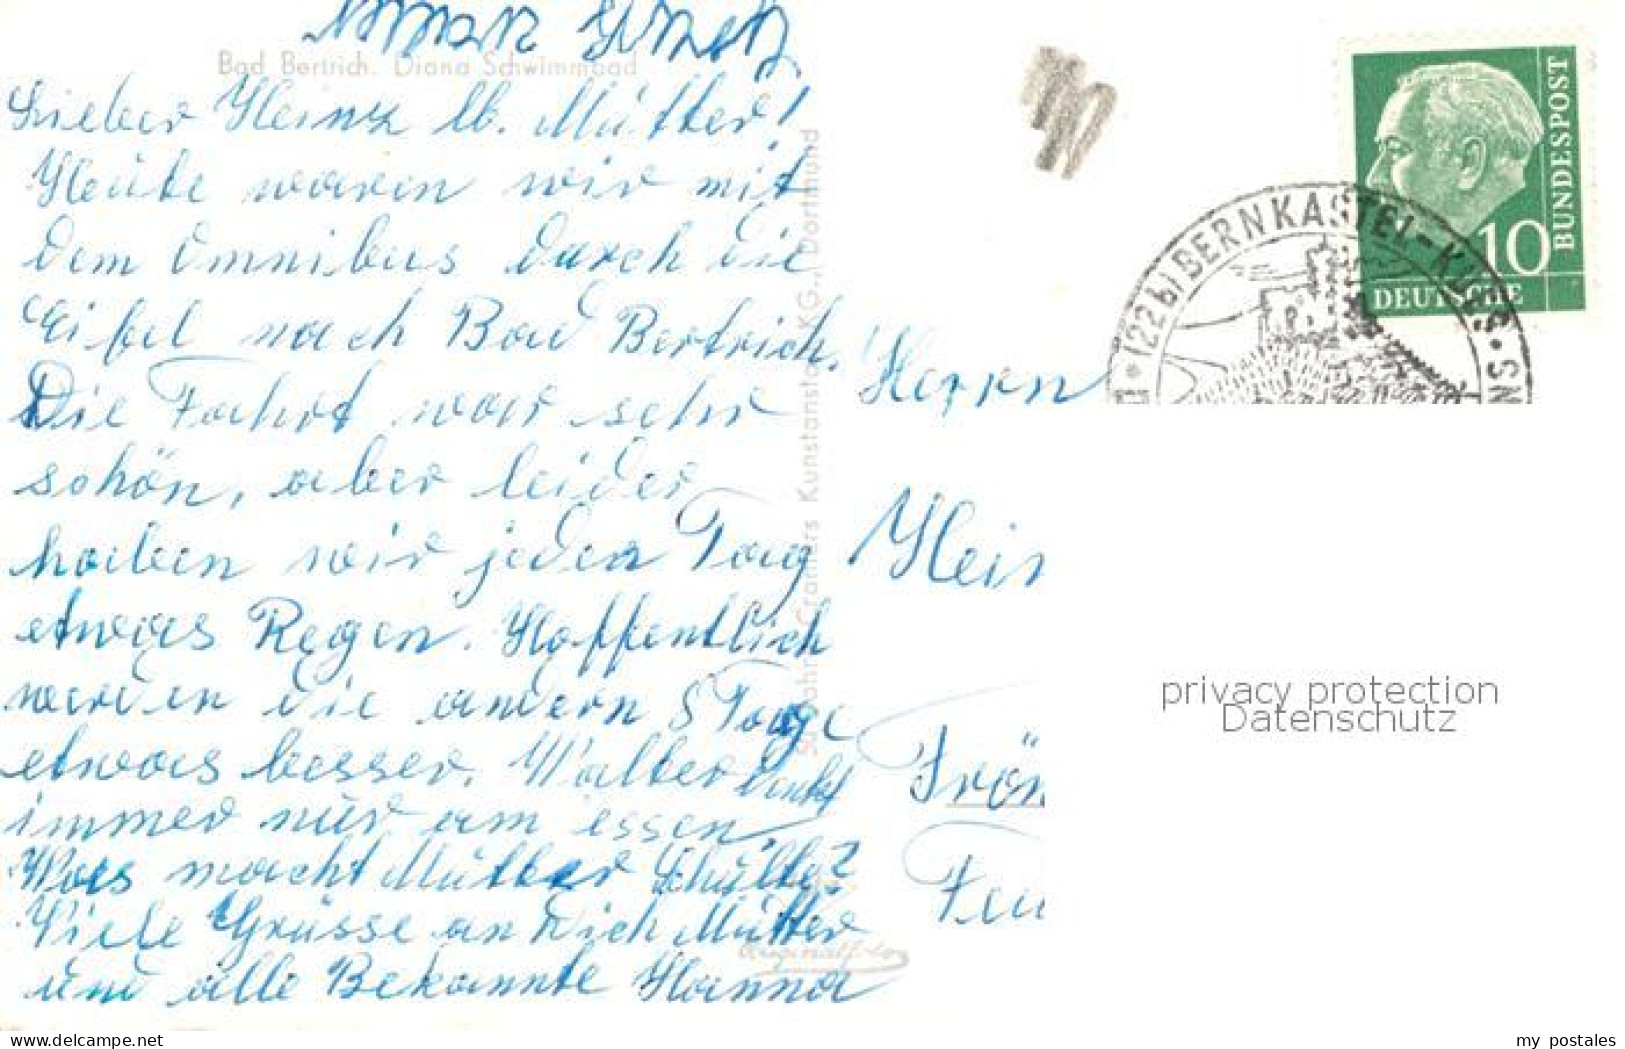 Bad Bertrich. Diana Schwimmbad
Lieber Heinz lb. Mutter!
Heute waren wir mit
dem Omnibus durch die
Eifel nach Bad Bertrich.
Die Fahrt war sehr
schön, aber leider
haben wir jeden Tag
etwas Regen. Hoffentlich
werden die andern 8 Tage
etwas besser. Walter denkt
immer nur am essen.
Was macht Mutter Schulte?
Viele Grüsse an Dich Mutter
und alle Bekannte Hanna
Schöning Cramers Kunstanstalt KG., Dortmund
Originalfoto
Herrn
Hein
Frön
BUNDESPOST
10
DEUTSCHE
(22b) BERNKASTEL-KUES
privacy protection
Datenschutz
Delcampe.net
my postales